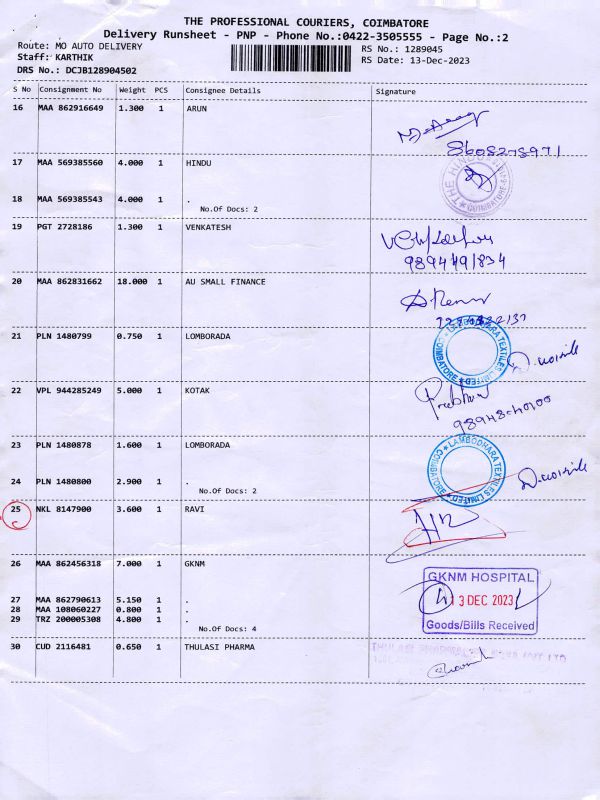 THE PROFESSIONAL COURIERS, COIMBATORE
Delivery Runsheet - PNP - Phone No.:0422-3505555 - Page No.:2
Route: MO AUTO DELIVERY
RS No.: 1289045
Staff: KARTHIK
RS Date: 13-Dec-2023
DRS No.: DCJB128904502
S No Consignment No Weight PCS Consignee Details Signature
16 MAA 862916649 1.300 1 ARUN
8608278971
17 MAA 569385560 4.000 1 HINDU
THE HINDU
COIMBATORE
18 MAA 569385543 4.000 1 .
No.Of Docs: 2
19 PGT 2728186 1.300 1 VENKATESH
9894491834
20 MAA 862831662 18.000 1 AU SMALL FINANCE
21 PLN 1480799 0.750 1 LOMBORADA
LAMBODHARA TEXTILES LIMITED
COIMBATORE
22 VPL 944285249 5.000 1 KOTAK
Prabhu
98948-40100
23 PLN 1480878 1.600 1 LOMBORADA
LAMBODHARA TEXTILES LIMITED
COIMBATORE
24 PLN 1480800 2.900 1 .
No.Of Docs: 2
25 NKL 8147900 3.600 1 RAVI
26 MAA 862456318 7.000 1 GKNM
GKNM HOSPITAL
13 DEC 2023
Goods/Bills Received
27 MAA 862790613 5.150 1 .
28 MAA 108060227 0.800 1 .
29 TRZ 200005308 4.800 1 .
No.Of Docs: 4
30 CUD 2116481 0.650 1 THULASI PHARMA